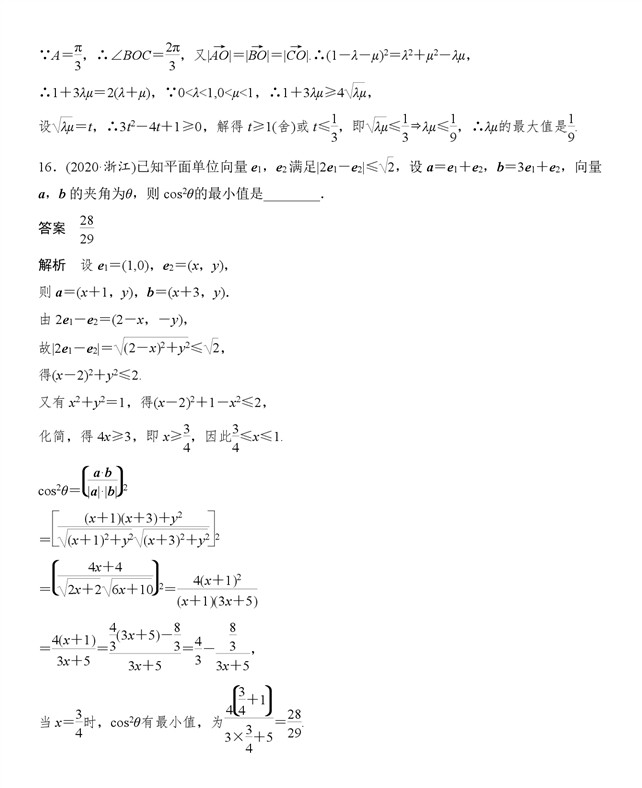 ∵A=π/3，∴∠BOC=2π/3，又|AO→|=|BO→|=|CO→|.∴(1－λ－μ)²=λ²＋μ²－λμ，
∴1＋3λμ=2(λ＋μ)，∵0<λ<1,0<μ<1，∴1＋3λμ≥4√(λμ)，
设√(λμ)=t，∴3t²－4t＋1≥0，解得 t≥1(舍)或 t≤1/3，即√(λμ)≤1/3⇒λμ≤1/9，∴λμ的最大值是1/9.
16．(2020·浙江)已知平面单位向量 e₁，e₂ 满足|2e₁－e₂|≤√2，设 a=e₁＋e₂，b=3e₁＋e₂，向量
a，b 的夹角为θ，则 cos²θ的最小值是________．
答案 28/29
解析 设 e₁=(1,0)，e₂=(x，y)，
则 a=(x＋1，y)，b=(x＋3，y)．
由 2e₁－e₂=(2－x，－y)，
故|2e₁－e₂|=√((2－x)²＋y²)≤√2，
得(x－2)²＋y²≤2.
又有 x²＋y²=1，得(x－2)²＋1－x²≤2，
化简，得 4x≥3，即 x≥3/4，因此3/4≤x≤1.
cos²θ=(a·b/(|a|·|b|))²
=[((x＋1)(x＋3)＋y²)/(√((x＋1)²＋y²)√((x＋3)²＋y²))]²
=((4x＋4)/(√(2x＋2)√(6x＋10)))²=4(x＋1)²/((x＋1)(3x＋5))
=4(x＋1)/(3x＋5)=(4/3(3x＋5)－8/3)/(3x＋5)=4/3－(8/3)/(3x＋5)，
当 x=3/4时，cos²θ有最小值，为4(3/4＋1)/(3×3/4＋5)=28/29.